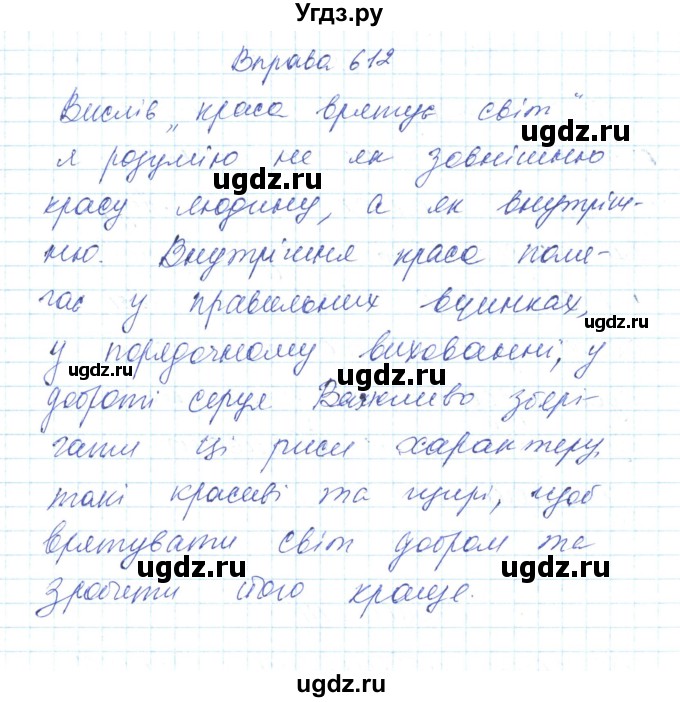 Угдз.ру
Вправа 612
Вислів „краса врятує світ"
ugdz.ru
я розумію не як зовнішню
ugdz.ru
красу людину, а як внутріш-
ню. Внутрішня краса поля-
гає у правильних вчинках,
ugdz.ru
у порядочному вихованні, у
ugdz.ru
ugdz.ru
доброті серця Важливо збері-
гати ці риси характеру,
ugdz.ru
такі красиві та щирі, щоб
врятувати світ добром та
ugdz.ru
ugdz.ru
зробити його краще.
ugdz.ru